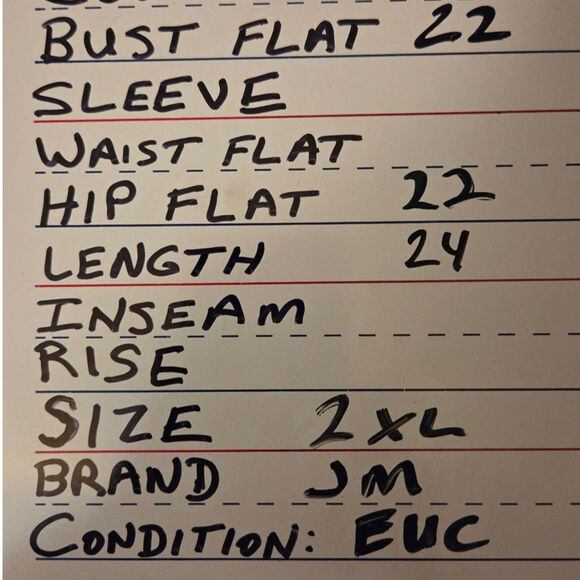 BUST FLAT 22
SLEEVE
WAIST FLAT
HIP FLAT 22
LENGTH 24
INSEAM
RISE
SIZE 2XL
BRAND JM
CONDITION: EUC